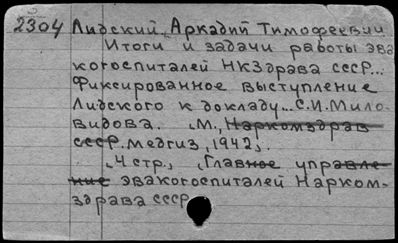 2304 Лидский, Аркадий Тимофеевич
Итоги и задачи работы эва
когоспиталей НКЗдрава СССР...
Фиксированное выступление
Лидского к докладу... С.И. Мило-
видова. М., Наркомздрав
СССР. Медгиз, 1942.
4 стр., Главное управле-
ние эвакогоспиталей Нарком-
здрава СССР